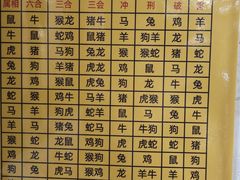 属相 六合 三合 三会 冲 刑 破 害
鼠 牛 猴龙 猪牛 马 兔 鸡 羊
牛 鼠 蛇鸡 鼠猪 羊 狗羊 龙 马
虎 猪 马狗 兔龙 猴 蛇猴 猪 蛇
兔 狗 猪羊 虎龙 鸡 鼠 马 龙
龙 鸡 猴鼠 兔虎 狗 龙 牛 兔
蛇 猴 鸡牛 马羊 猪 虎猴 猴 虎
马 羊 虎狗 蛇羊 鼠 马 兔 牛
羊 马 猪兔 蛇马 牛 牛狗 狗 鼠
猴 蛇 鼠龙 鸡狗 虎 虎蛇 蛇 猪
鸡 龙 牛蛇 猴狗 兔 鸡 鼠 狗
狗 兔